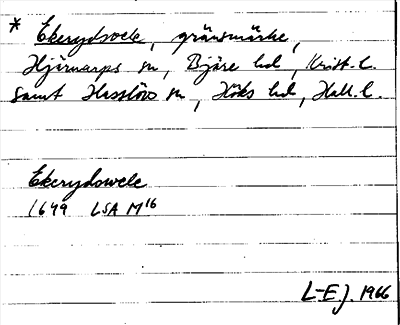 * Ekerydsvele, gränsmärke,
Hjärnarps sn, Bjäre hd, Krist. l.
samt Hasslövs sn, Höks hd, Hall. l.
Ekerydswele
1649 LSA M16
L-E J. 1966